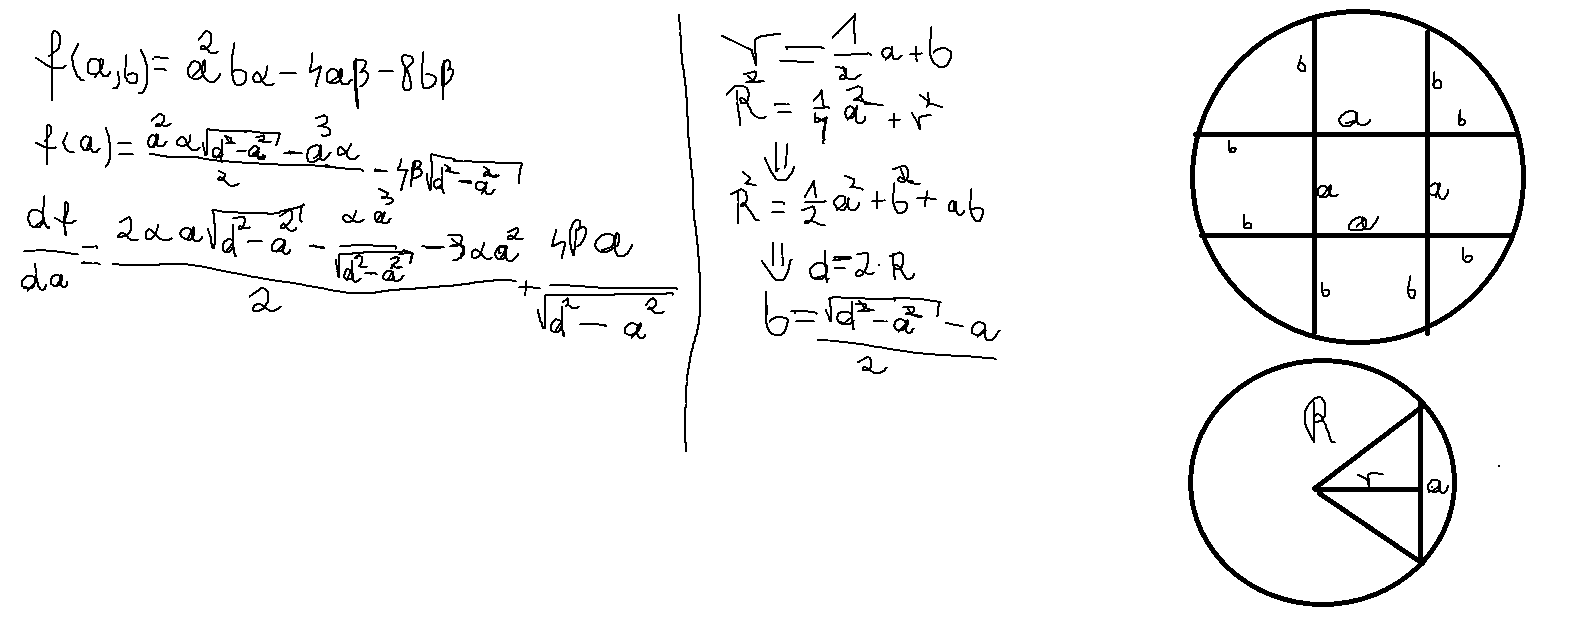 f(a,b) = a²bα − 4aβ − 8bβ
f(a) = (a²α√(d²−a²) − a³α)/2 − 4β√(d²−a²)
df/da = (2αa√(d²−a²) − αa³/√(d²−a²) − 3αa²)/2 + 4βa/√(d²−a²)
r = 1/2 a + b
R² = 1/4 a² + r²
⇓
R² = 1/2 a² + b² + ab
⇓ d = 2·R
b = (√(d²−a²) − a)/2
b b
a b b
b
a a
b a b
b b
R
r a